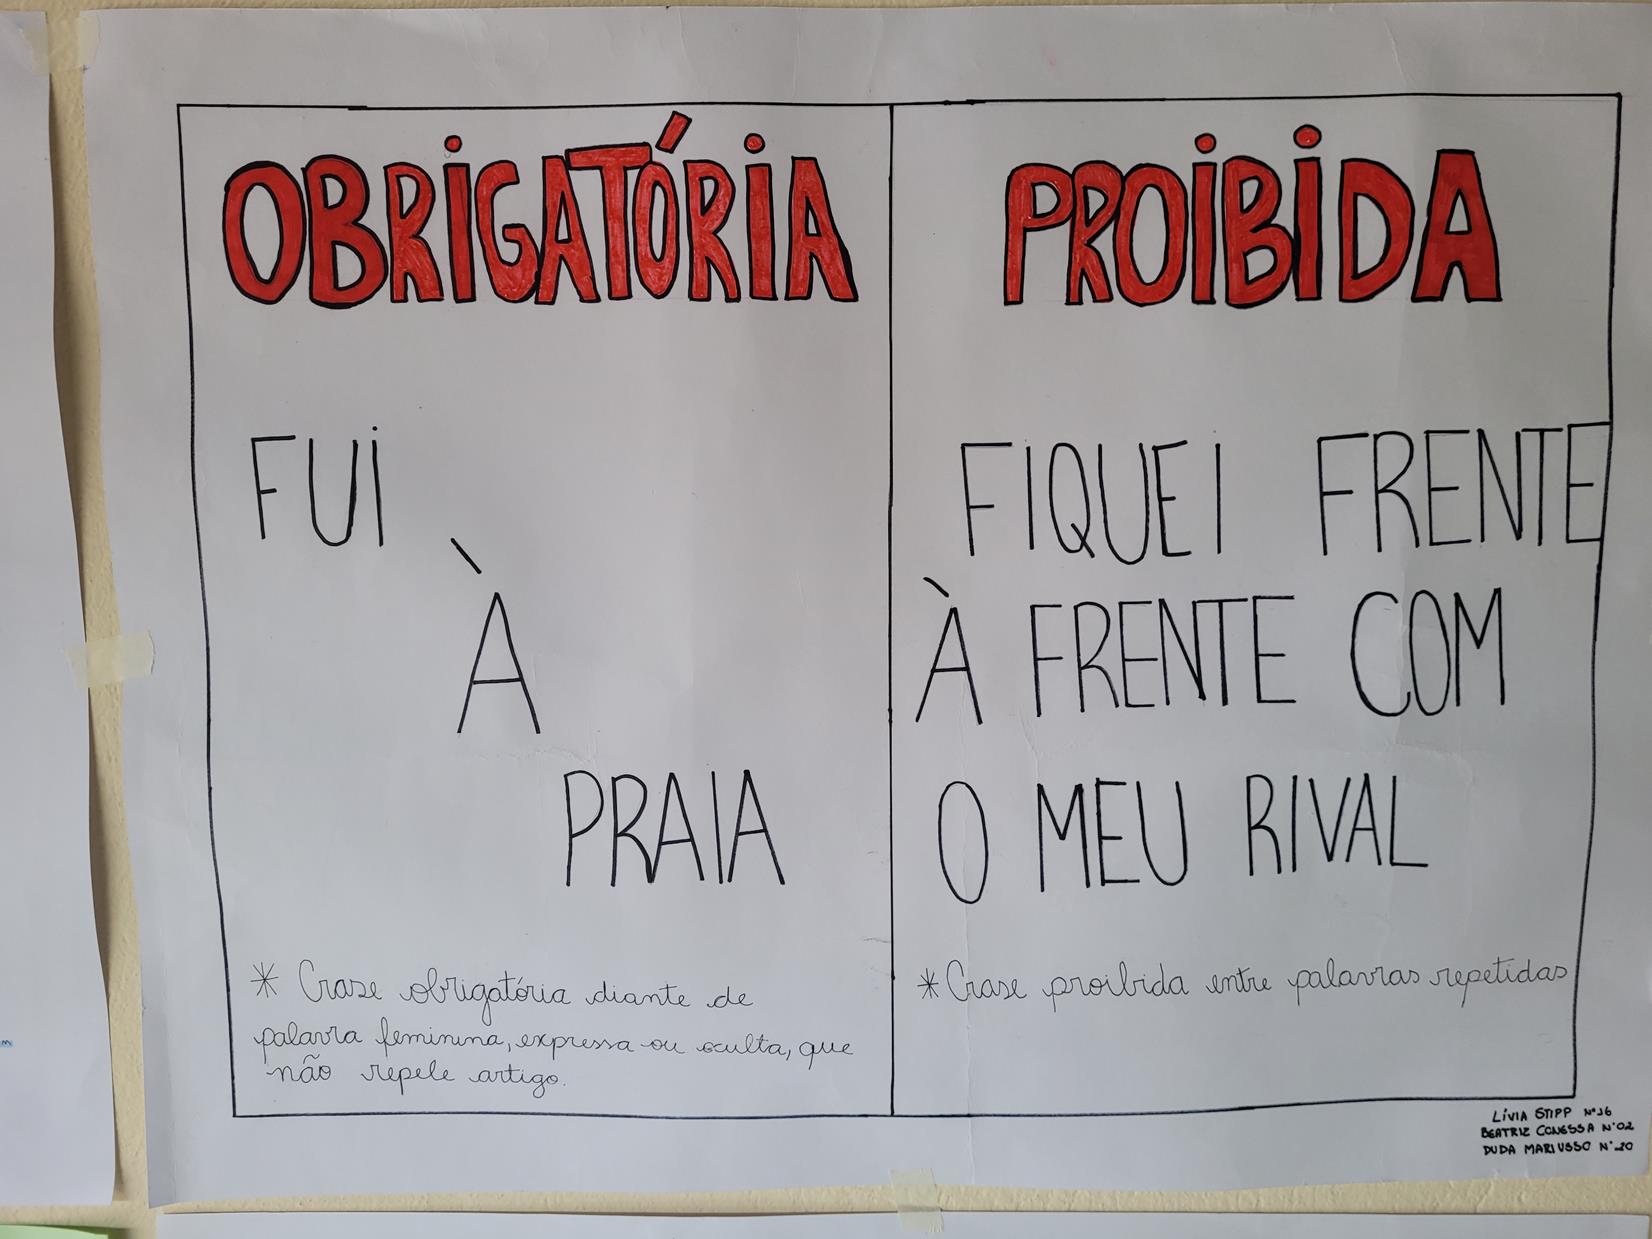 OBRIGATÓRIA
FUI
À
PRAIA
* Crase obrigatória diante de
palavra feminina, expressa ou oculta, que
não repele artigo.
PROIBIDA
FIQUEI FRENTE
À FRENTE COM
O MEU RIVAL
* Crase proibida entre palavras repetidas
LÍVIA STIPP Nº16
BEATRIZ CONESSA Nº02
DUDA MARIUSSO Nº20